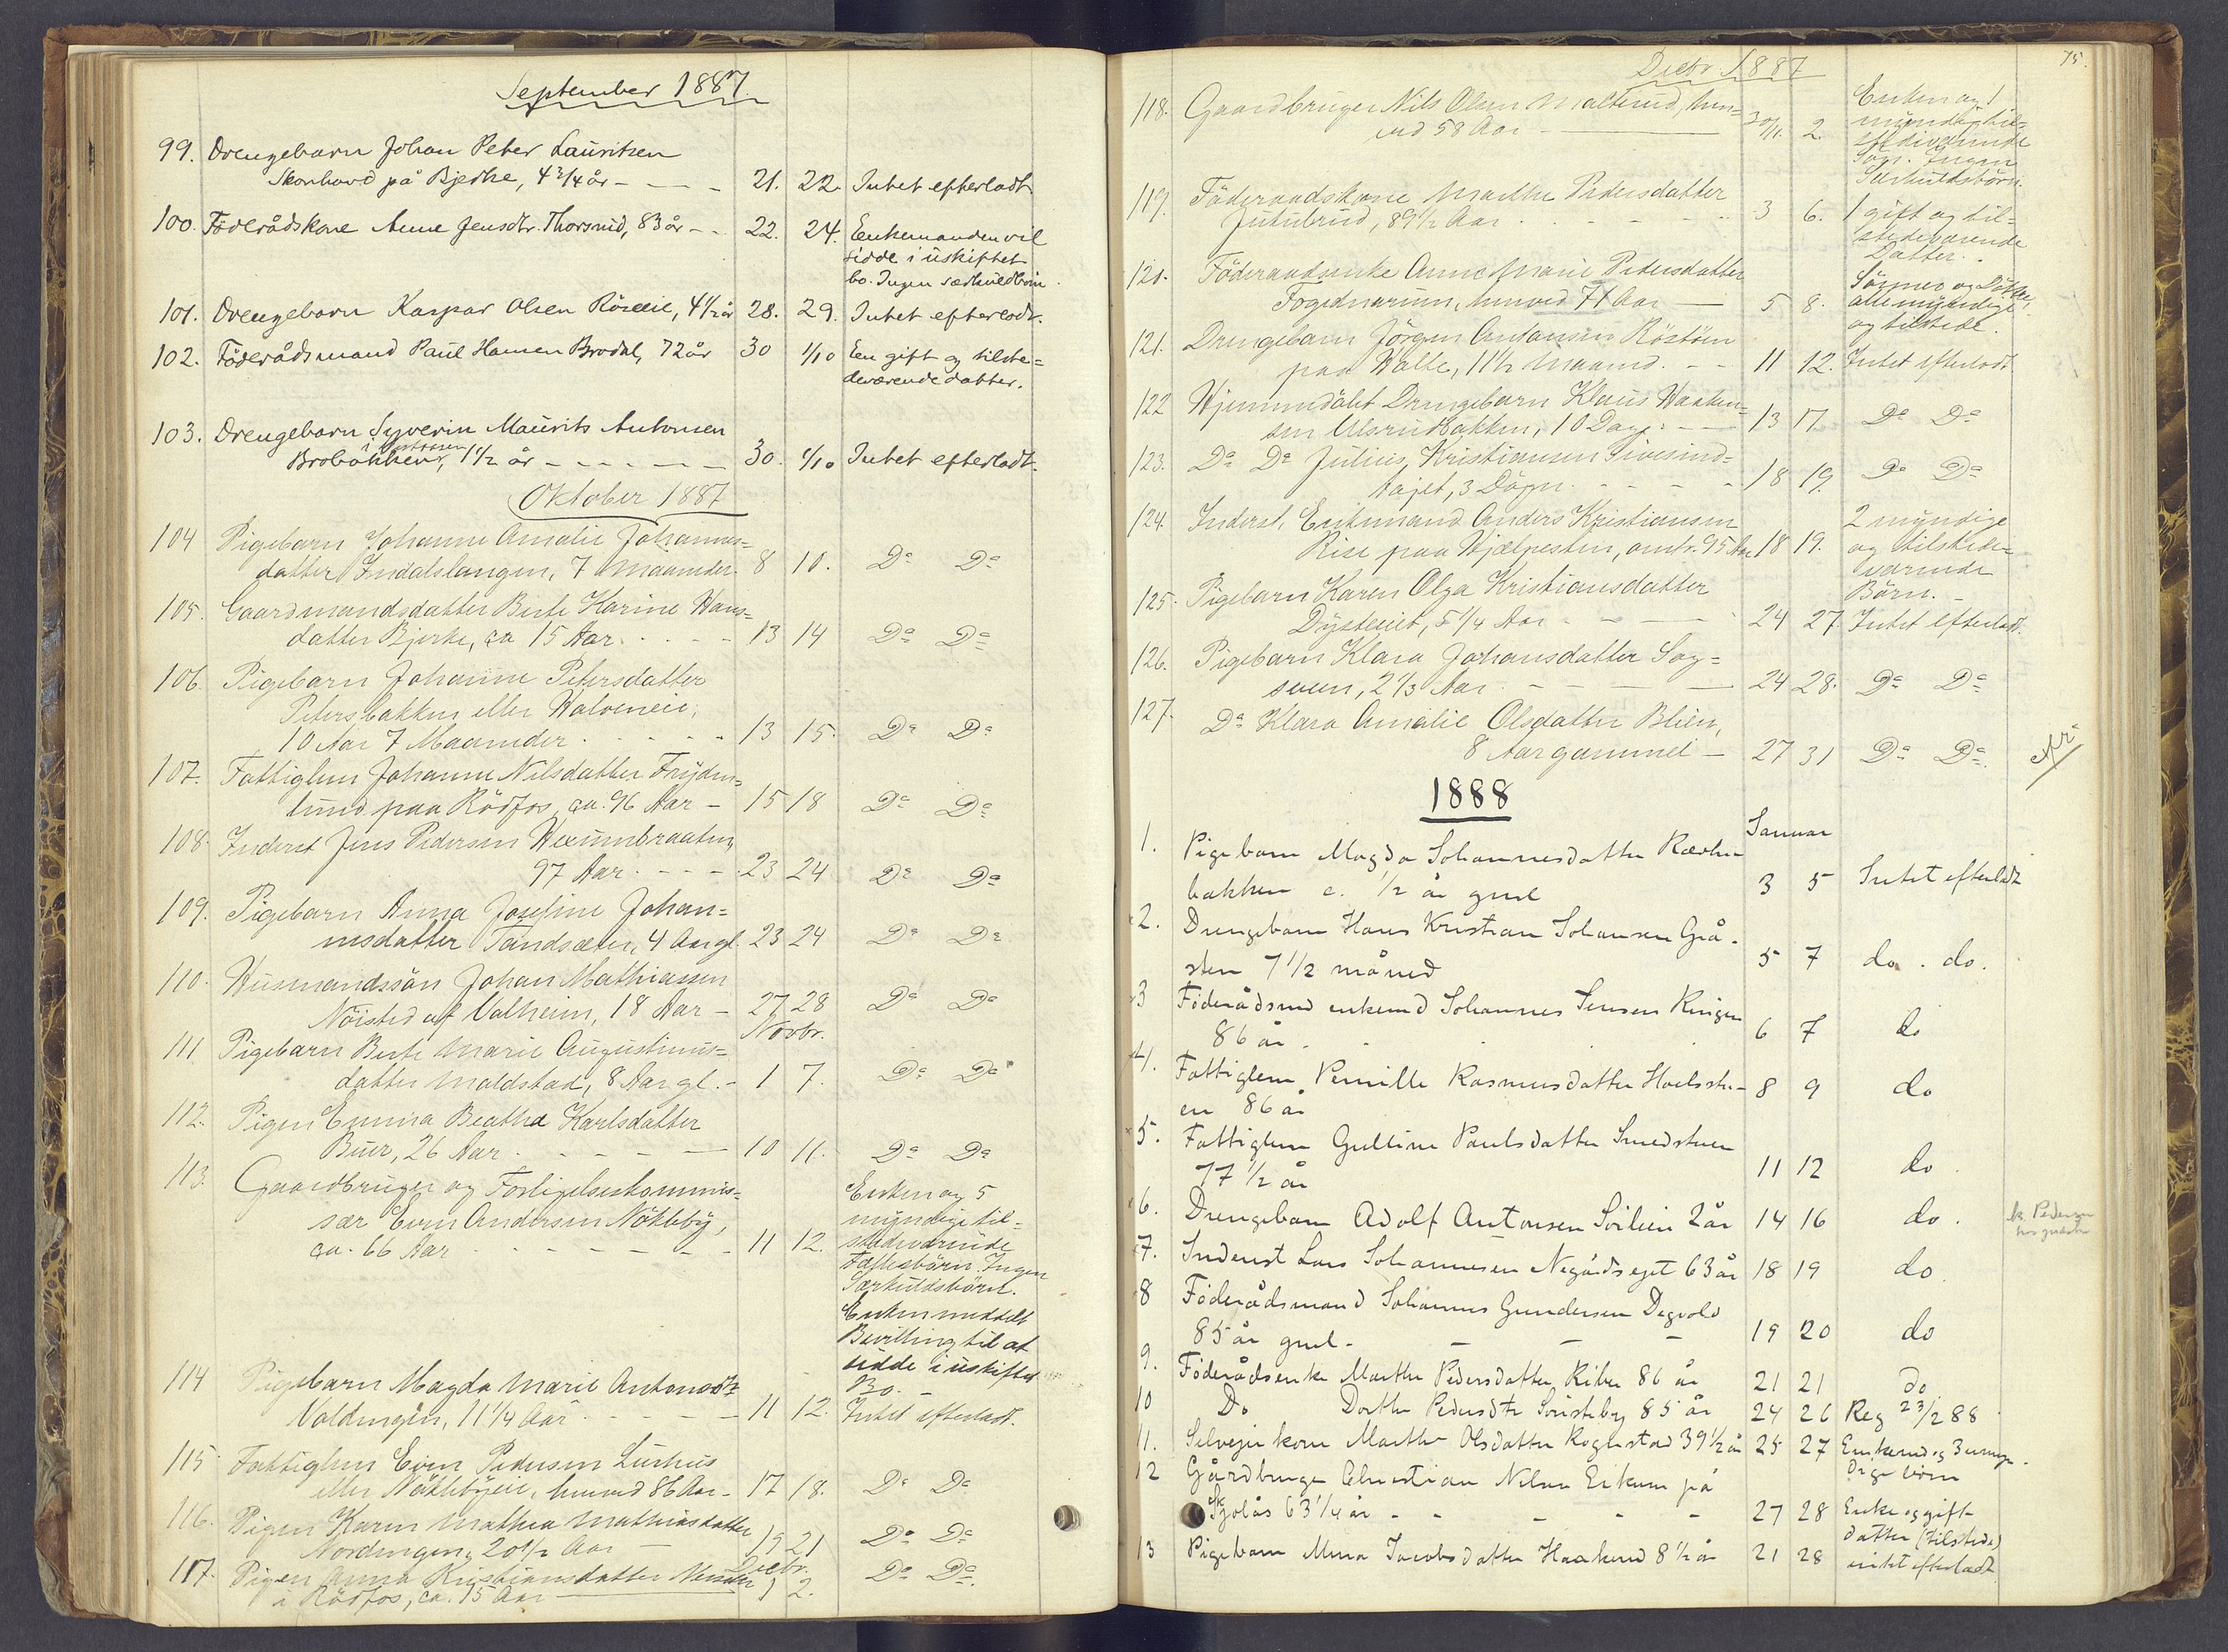 September 1887.
99. Drengebarn Johan Peter Lauritsen
Skonhovd på Bjerke, 4 3/4 år - - - 21. 22. Intet efterladt
100. Föderådskone Anne Jensdtr. Thorsrud, 83 år - - 22. 24. Enkemanden vil
sidde i uskiftet
bo. Ingen særkuldbörn.
101. Drengebarn Kaspar Olsen Röseie, 4 1/2 år 28. 29. Intet efterladt.
102. Föderådsmand Paul Hansen Brodal, 72 år 30 1/10 En gift og tilste=
deværende datter.
103. Drengebarn Syverin Maurits Antonsen
Brobakken, 1 1/2 år - - - - - 30. 1/10 Intet efterladt.
Oktober 1887
104 Pigebarn Johanne Amalie Johannes=
datter Indalslangen, 7 Maaneder. 8 10. Do Do
105. Gaardmandsdatter Berte Karine Hans=
datter Bjerke, ca 15 Aar. - - - 13 14 Do Do
106. Pigebarn Johanne Petersdatter
Petersbakken eller Halveneie,
10 Aar 7 Maaneder - - - - 13 15. Do Do
107. Fattiglem Johanne Nilsdatter Fryden=
lund paa Rödfos, ca. 96 Aar - 15 18 Do Do
108. Inderst Jens Pedersen Hexumbraaten,
97 Aar. - - - 23 24 Do Do
109. Pigebarn Anna Josefine Johan=
nesdatter Tandsæter, 4 Aar gl. 23 24 Do Do
110. Husmandssön Johan Mathiassen
Nöisted af Valheim, 18 Aar - 27 28 Do Do
Novbr.
111. Pigebarn Berte Marie Augustinus=
datter Maldstad, 8 Aar gl. - 1 7. Do Do
112. Pigen Emma Beatha Karlsdatter
Buer, 26 Aar - - - - 10 11. Do Do
113. Gaardbruger og Forligelseskommis= Enken og 5
sær Even Andersen Nökleby, myndige til=
ca. 66 Aar - - - - - 11 12. stedeværende
Fællesbörn. Ingen
Særkuldsbörn.
Enken meddelt
Bevilling til at
sidde i uskiftet
Bo. -
114 Pigebarn Magda Marie Antonsdtr
Valdengen, 11 1/4 Aar - - - - 11 12. Intet efterladt.
115 Fattiglem Even Pedersen Lushus
eller Nöklebyeie, henved 86 Aar - 17 18. Do Do
116. Pigen Karen Mathea Mathiasdatter
Nordengen, 20 1/2 Aar - 19 21 Do Do
Decbr.
117. Pigen Anna Kristiansdatter
i Rödfos, ca. 15 Aar - 1 2. Do Do.
Decbr. 1887 75.
118. Gaardbruger Nils Olsen Malterud, hen= Enken og 1
ved 58 Aar - 30/11. 2. myndig til=
stedeværende
Sön. Ingen
Særkuldsbörn.
119. Föderaadskone Marthe Pedersdatter
Jutulrud, 89 1/2 Aar - - - 3 6. 1 gift og til=
stedeværende
Datter.
120. Föderaadsenke Anne Marie Pedersdatter Sönner og Döttre,
henved 71 Aar - 5 8. alle myndige
og tilstede.
121. Drengebarn Jörgen Antonsen Röstöen
paa Halte, 11 1/2 Maaned. - - 11 12. Intet efterladt
122 Hjemmedöbt Drengebarn Klaus Haaken=
sen Ulsrudbakken, 10 Dage. - - 13 17. Do Do
123. Do Do Julius Kristiansen Sivesind=
hajet, 3 Dögn. - - - - 18 19. Do Do
124. Inderst, Enkemand Anders Kristiansen 2 myndige
Rise paa Hjælpesten, omtr. 95 Aar 18 19. og tilstede=
værende
Börn. -
125. Pigebarn Karen Olga Kristiansdatter
Dysteeiet, 5 1/4 Aar - - - 24 27. Intet efterladt.
126. Pigebarn Klara Johansdatter Sog=
, 2 1/3 Aar. - - - 24 28. Do Do
127. Do Klara Amalie Olsdatter Blien,
8 Aar gammel - 27 31 Do Do.
1888
Januar
1. Pigebarn Magda Johannesdatter Ræve
bakken c. 1/2 år gml 3 5 Intet efterladt
2. Drengebarn Hans Kristian Johansen Grå-
sten 7 1/2 måned 5 7 do. do.
3 Föderådsmd enkemd Johannes Jensen Ringen
86 år. 6 7 do
4. Fattiglem Pernille Rasmusdatter Hoelsstu-
en 86 år 8 9 do
5. Fattiglem Gulline Paulsdatter Smedstuen
77 1/2 år 11 12 do
6. Drengebarn Adolf Antonsen Söileie 2 år 14 16 do.
7. Inderst Lars Johannesen Negårdseget 63 år 18 19 do
8 Föderådsmand Johannes Gundersen Degvold
85 år gml. - - - 19 20 do
9. Föderådsenke Marthe Pedersdatter Ribe 86 år 21 21 do
10 Do Dorthe Pedersdtr Sörisheby 85 år 24 26 Reg 23/2 88
11. Selveierkone Marthe Olsdatter Rognstad 39 1/2 år 25 27 Enkemd og 3 umyn-
dige börn
12 Gårdbruger Christian Nilsen Eikum på
Skjolås 63 1/4 år - - - - 27 28 Enke og gift
datter (tilstede)
13 Pigebarn Mina Jacobsdatter Haakerud 8 1/2 år 21 28 intet efterladt